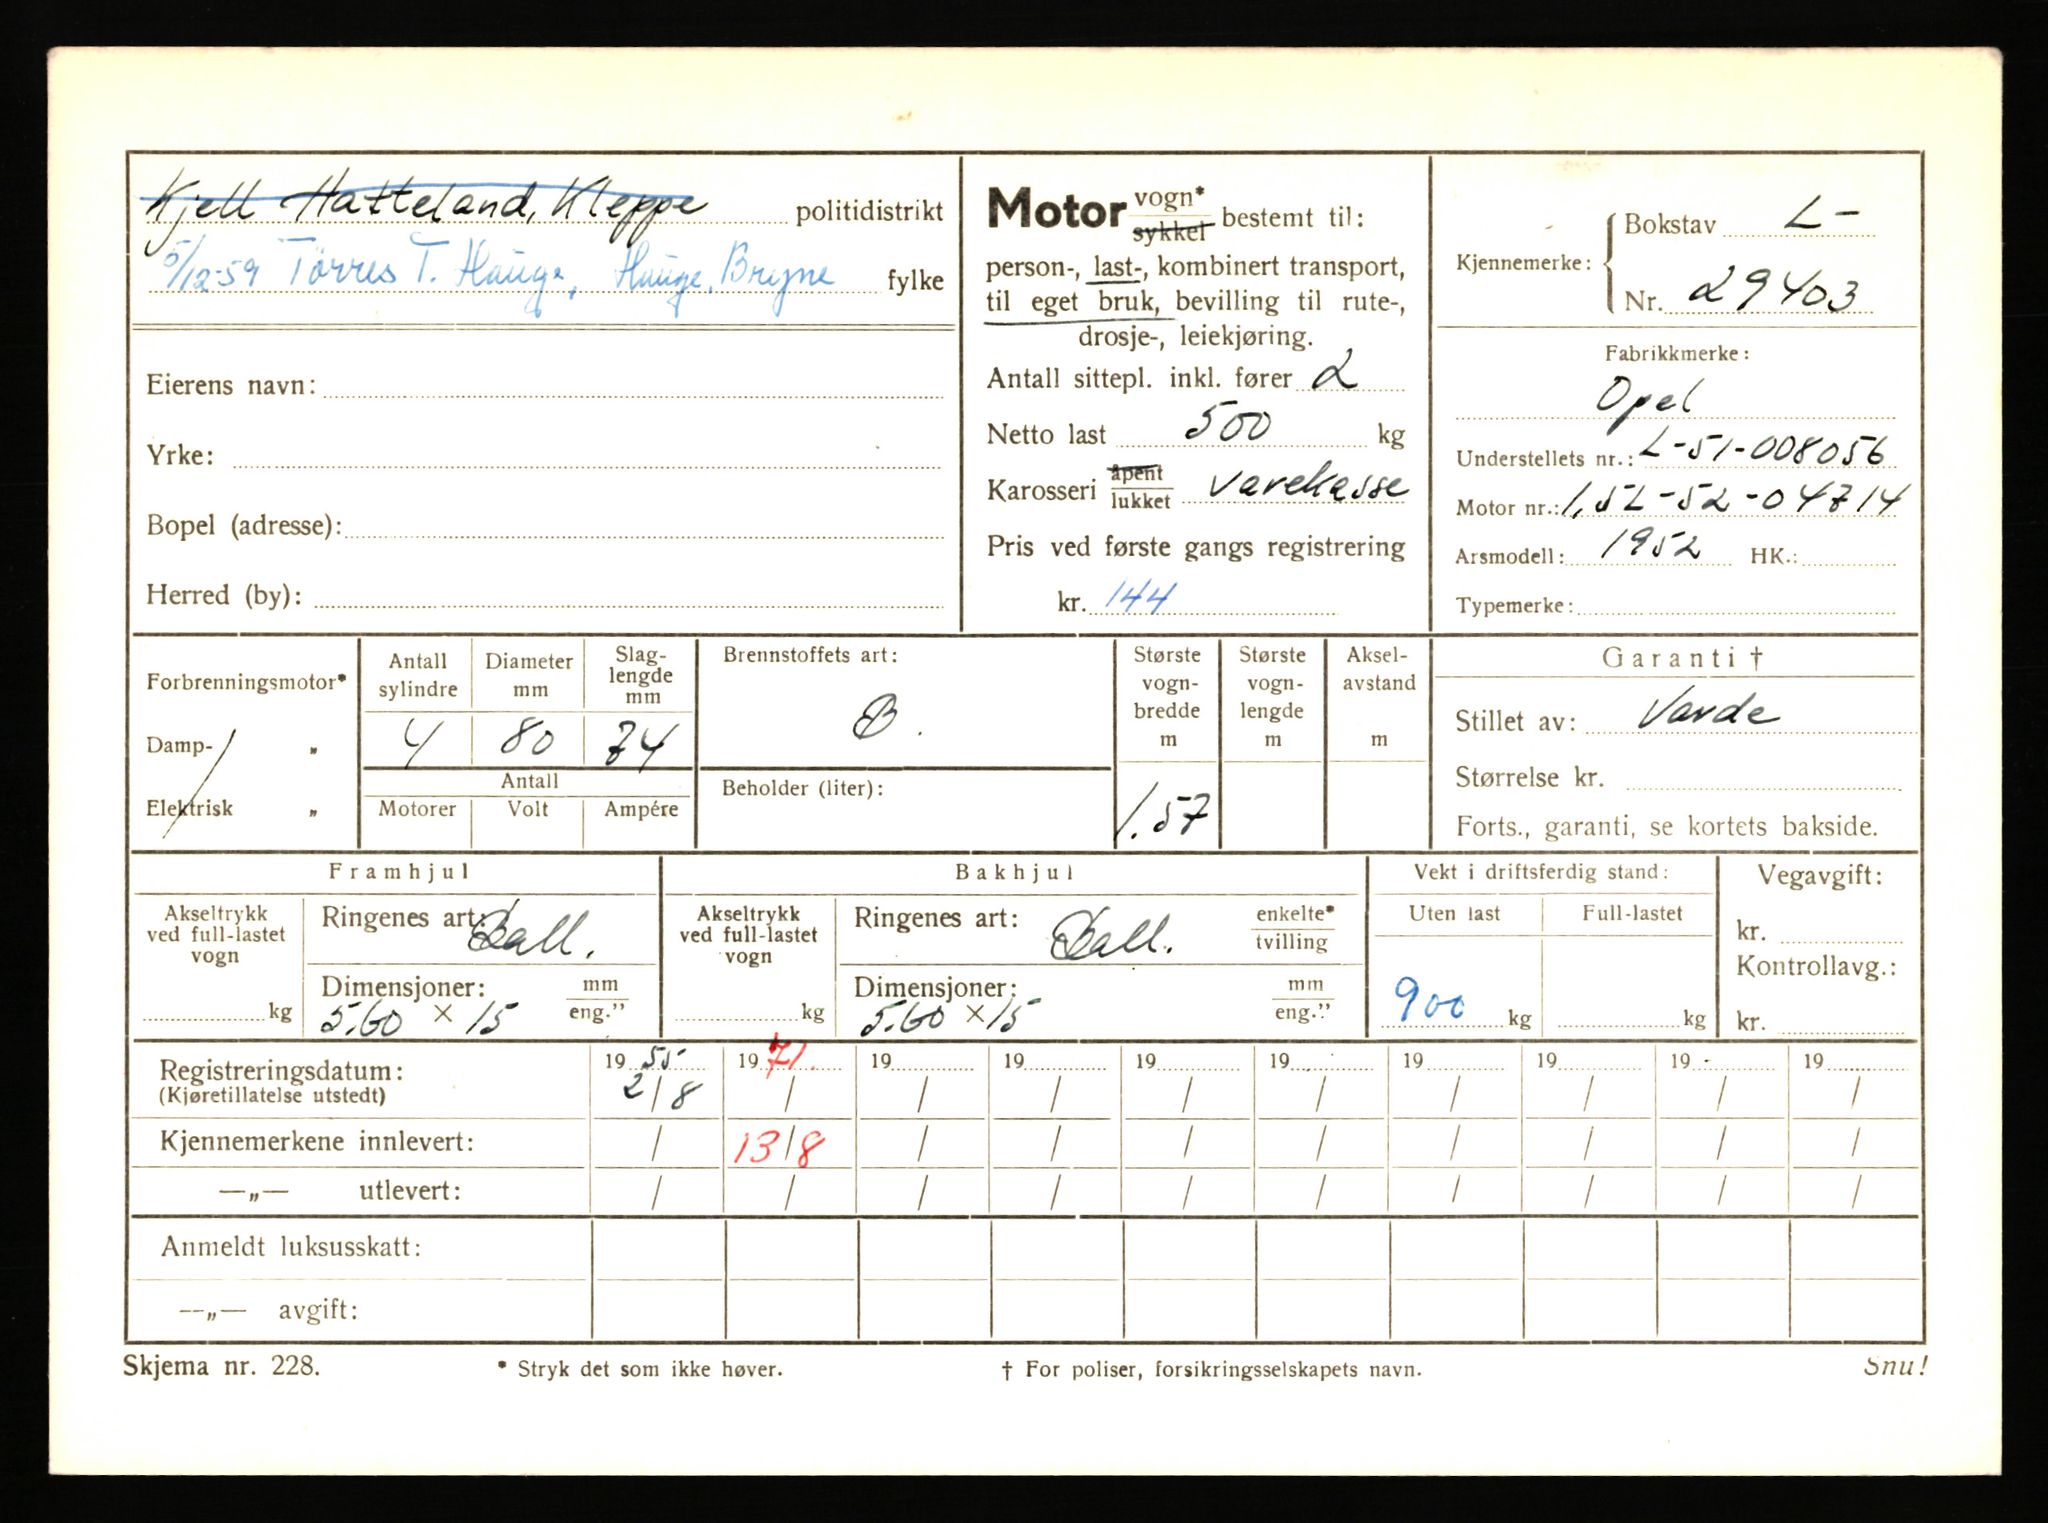 Kjell Hatteland, Kleppe politidistrikt
5/12-59 Tørres T. Hauge, Hauge, Bryne fylke
Eierens navn:
Yrke:
Bopel (adresse):
Herred (by):
Motor vogn* sykkel bestemt til:
person-, last-, kombinert transport,
til eget bruk, bevilling til rute-,
drosje-, leiekjøring.
Antall sittepl. inkl. fører 2
Netto last 500 kg
Karosseri åpent lukket varekasse
Pris ved første gangs registrering
kr. 144
Kjennemerke: Bokstav L-
Nr. 29403
Fabrikkmerke:
Opel
Understellets nr.: L-51-008056
Motor nr.: 1,5L-52-04714
Arsmodell: 1952 HK.:
Typemerke:
Forbrenningsmotor*
Damp- „
Elektrisk „
Antall sylindre
Diameter mm
Slag-lengde mm
4 80 74
Antall
Motorer Volt Ampére
Brennstoffets art:
B.
Beholder (liter):
Største vogn-bredde m
1.57
Største vogn-lengde m
Aksel-avstand m
Garanti †
Stillet av: Varde
Størrelse kr.
Forts., garanti, se kortets bakside.
Framhjul
Akseltrykk ved full-lastet vogn
kg
Ringenes art: Ball.
Dimensjoner: mm eng."
5.60 × 15
Bakhjul
Akseltrykk ved full-lastet vogn
kg
Ringenes art: Ball. enkelte* tvilling
Dimensjoner: mm eng."
5.60 × 15
Vekt i driftsferdig stand:
Uten last Full-lastet
900 kg kg
Vegavgift:
kr.
Kontrollavg.:
kr.
Registreringsdatum: 19 55 19 71. 19 19 19 19 19 19 19 19
(Kjøretillatelse utstedt) 2/8 / / / / / / / / /
Kjennemerkene innlevert: / 13/8 / / / / / / / /
—„— utlevert: / / / / / / / / / /
Anmeldt luksusskatt:
—„— avgift:
Skjema nr. 228. * Stryk det som ikke høver. † For poliser, forsikringsselskapets navn. Snu!